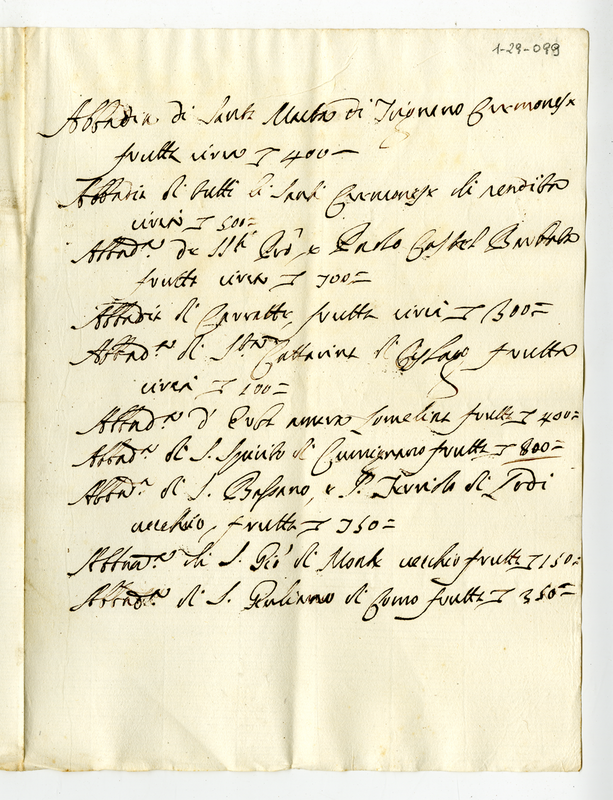 1-29-099
Abbadia di Santa Maria di Cremonese
frutta circa 400=
Abbadia di tutti li Santi Cremonese di rendita
circa 500=
Abbad.a de SS.ti e Paolo Castel Barbato
frutta circa 700=
Abbadia di frutta circa 1300=
Abbad.a di S.ta Cattarina di frutta
circa 100=
Abbad.a d' frutta 400=
Abbad.a di S. Spirito di frutta 800=
Abbad.a di S. Bassano, e di Lodi
vecchio, frutta 750=
Abbad.a di S. Gio' di Monte vecchio frutta 150=
Abbad.a di S. Giuliano di Como frutta 350=